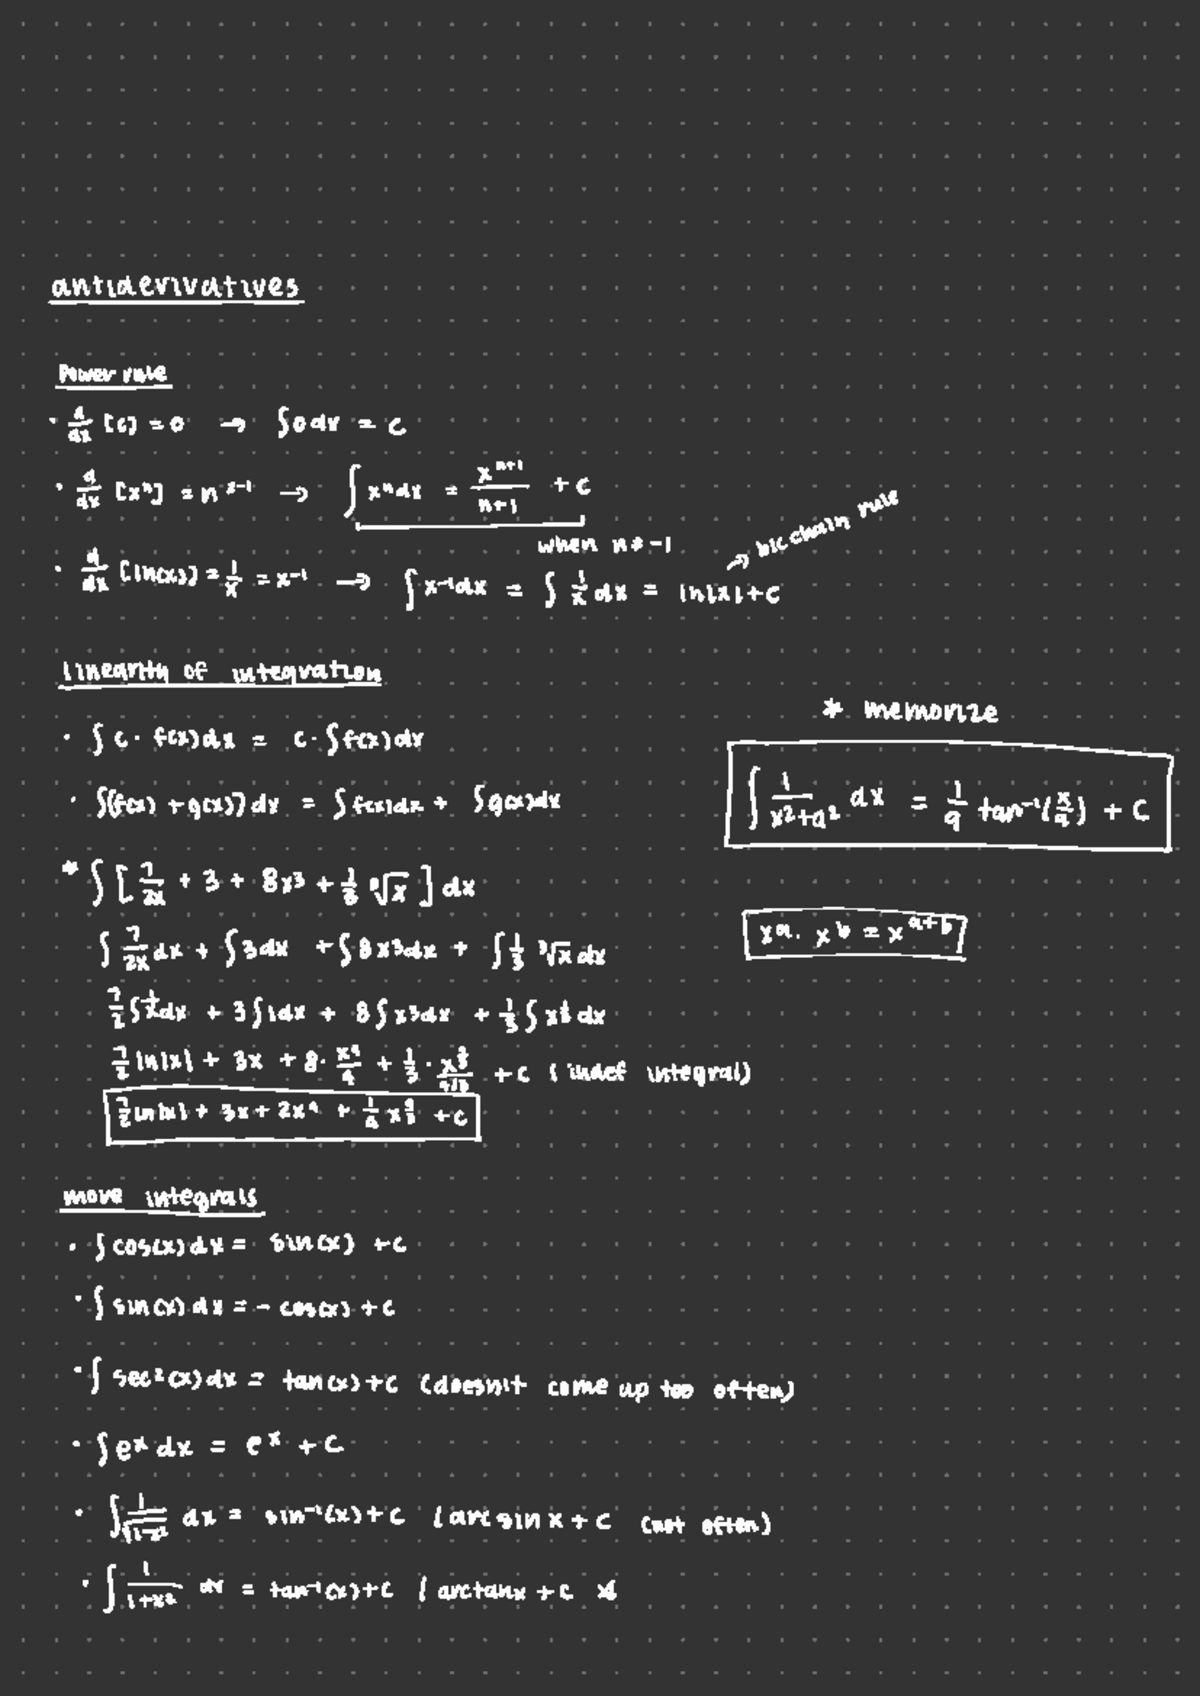 antiderivatives
Power rule
· d/dx [c] = 0 → ∫0 dx = c
· d/dx [xⁿ] = n ˣ⁻¹ → ∫xⁿdx = xⁿ⁺¹/n+1 + c
when n ≠ -1
· d/dx [ln(x)] = 1/x = x⁻¹ → ∫x⁻¹dx = ∫1/x dx = ln|x|+c
→ b/c chain rule
linearity of integration
· ∫c · f(x)dx = c · ∫f(x)dx
· ∫[f(x) + g(x)] dx = ∫f(x)dx + ∫g(x)dx
* memorize
∫ 1/x²+a² dx = 1/a tan⁻¹(x/a) + C
* ∫[7/2x + 3 + 8x³ + 1/3 ³√x] dx
xᵃ · xᵇ = xᵃ⁺ᵇ
∫7/2x dx + ∫3dx + ∫8x³dx + ∫1/3 ³√x dx
7/2∫1/x dx + 3∫1dx + 8∫x³dx + 1/3∫x^1/3 dx
7/2 ln|x| + 3x + 8 · x⁴/4 + 1/3 · x^4/3/4/3 + c (indef integral)
7/2 ln|x| + 3x + 2x⁴ + 1/4 x^4/3 + c
more integrals
· ∫cos(x)dx = sin(x) + c
· ∫sin(x)dx = - cos(x) + c
· ∫sec²(x)dx = tan(x)+c (doesn't come up too often)
· ∫eˣ dx = eˣ + c
· ∫1/√1-x² dx = sin⁻¹(x)+c / arcsin x + c (not often)
· ∫1/1+x² dx = tan⁻¹(x)+c / arctanx + c *